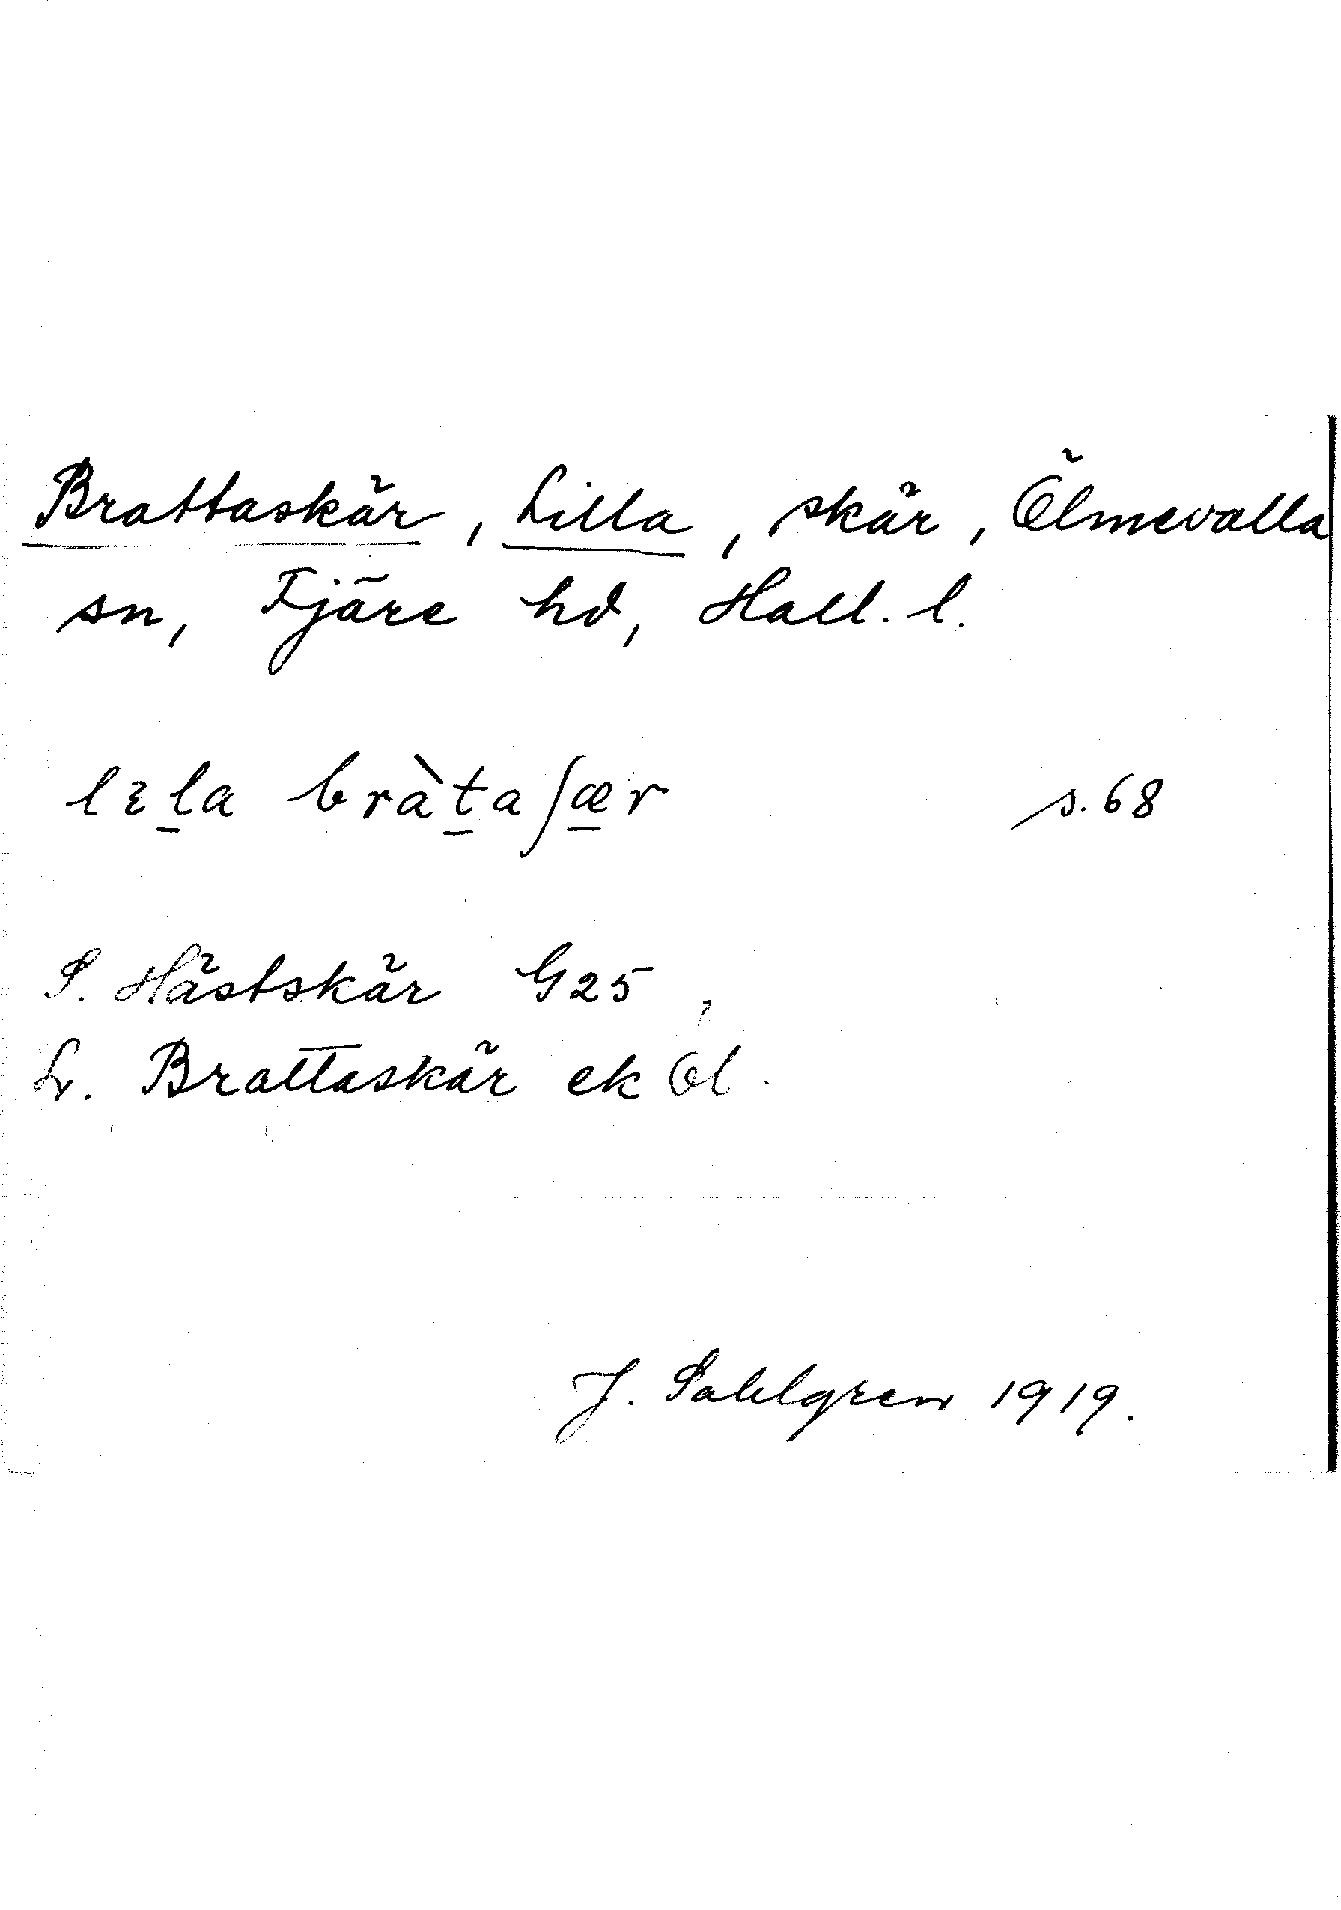 Brattaskär, Lilla, skär, Ölmevalla
sn, Fjäre hd, Hall. l.
lɛl̠a bràt̠aʃæ̠r s. 68
S. Hästskär G25,
L. Brattaskär ek Öl.
J. Sahlgren 1919.